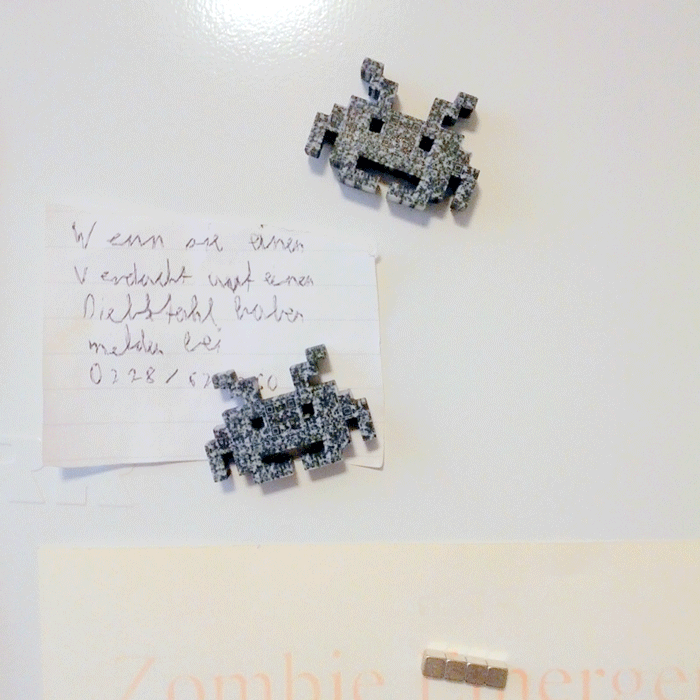 Wenn sie einen
Verdacht auf einen
Diebstahl haben
melden bei
0228/
Zombie Emerge